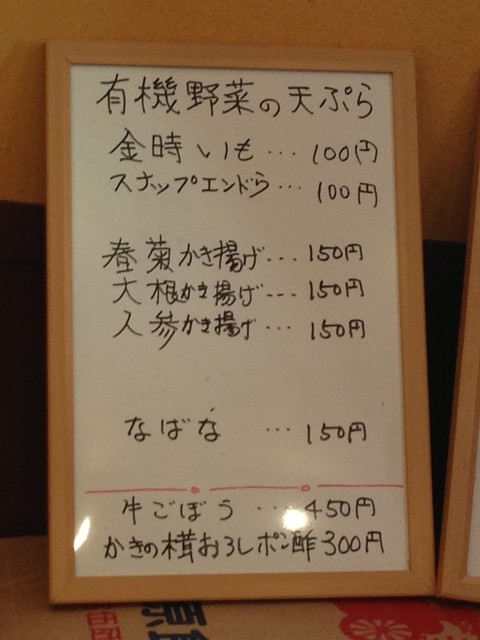 有機野菜の天ぷら
金時いも…100円
スナップエンドら…100円
春菊かき揚げ…150円
大根かき揚げ---150円
人参かき揚げ…150円
なばな …150円
牛ごぼう…450円
かきの茸おろしポン酢300円